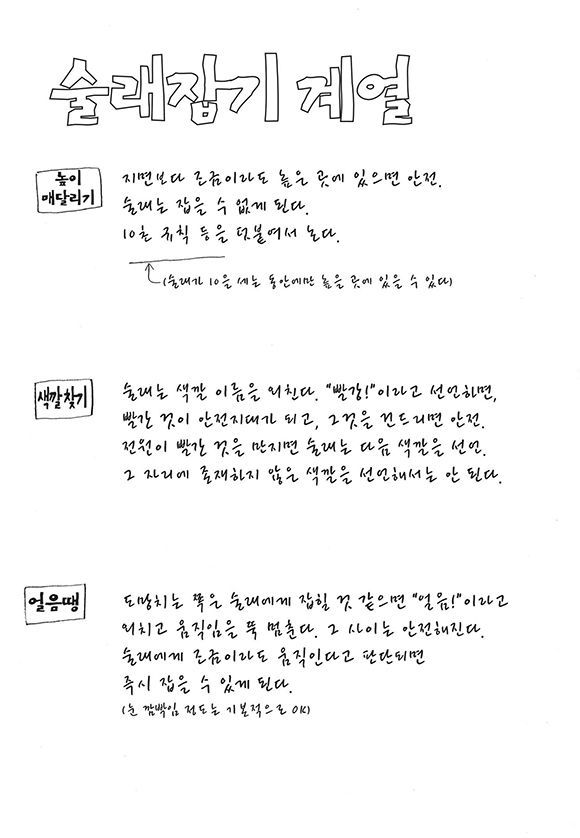 술래잡기 계열
높이
매달리기
지면보다 조금이라도 높은 곳에 있으면 안전.
술래는 잡을 수 없게 된다.
10초 규칙 등을 덧붙여서 논다.
(술래가 10을 세는 동안에만 높은 곳에 있을 수 있다)
색깔찾기
술래는 색깔 이름을 외친다. "빨강!"이라고 선언하면,
빨간 것이 안전지대가 되고, 그것을 건드리면 안전.
전원이 빨간 것을 만지면 술래는 다음 색깔을 선언.
그 자리에 존재하지 않은 색깔을 선언해서는 안 된다.
얼음땡
도망치는 쪽은 술래에게 잡힐 것 같으면 "얼음!"이라고
외치고 움직임을 뚝 멈춘다. 그 사이는 안전해진다.
술래에게 조금이라도 움직인다고 판단되면
즉시 잡을 수 있게 된다.
(눈 깜빡임 정도는 기본적으로 OK)